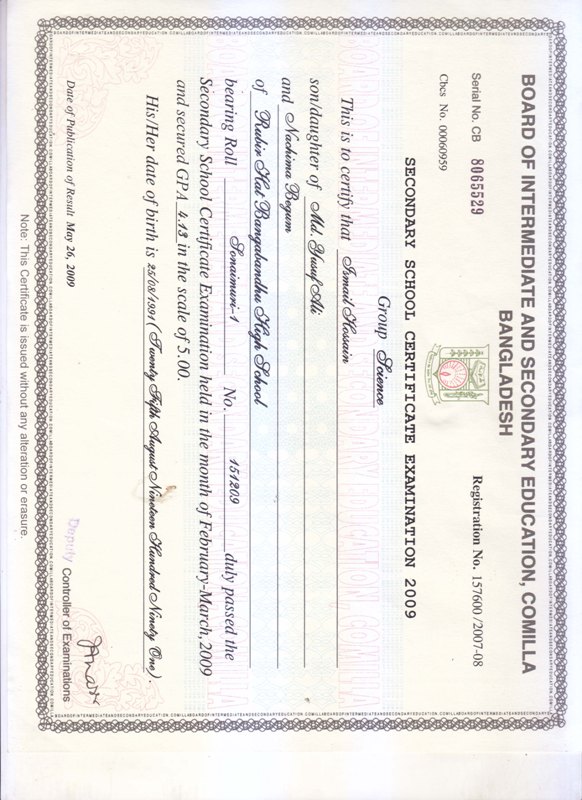 BOARD OF INTERMEDIATE AND SECONDARY EDUCATION, COMILLA
BANGLADESH
Serial No. CB 8065529
Registration No. 157600/2007-08
Cbcs No. 00060959
SECONDARY SCHOOL CERTIFICATE EXAMINATION 2009
Group Science
This is to certify that Ismail Hossain
son/daughter of Md. Yusuf Ali
and Nachima Begum
of Rubir Hat Bangabandhu High School
bearing Roll Sonaimuri-1 No. 151209 duly passed the
Secondary School Certificate Examination held in the month of February-March, 2009
and secured GPA 4.13 in the scale of 5.00.
His/Her date of birth is 25/08/1991 (Twenty Fifth August Nineteen Hundred Ninety One).
Date of Publication of Result May 26, 2009
Deputy Controller of Examinations
Note: This Certificate is issued without any alteration or erasure.